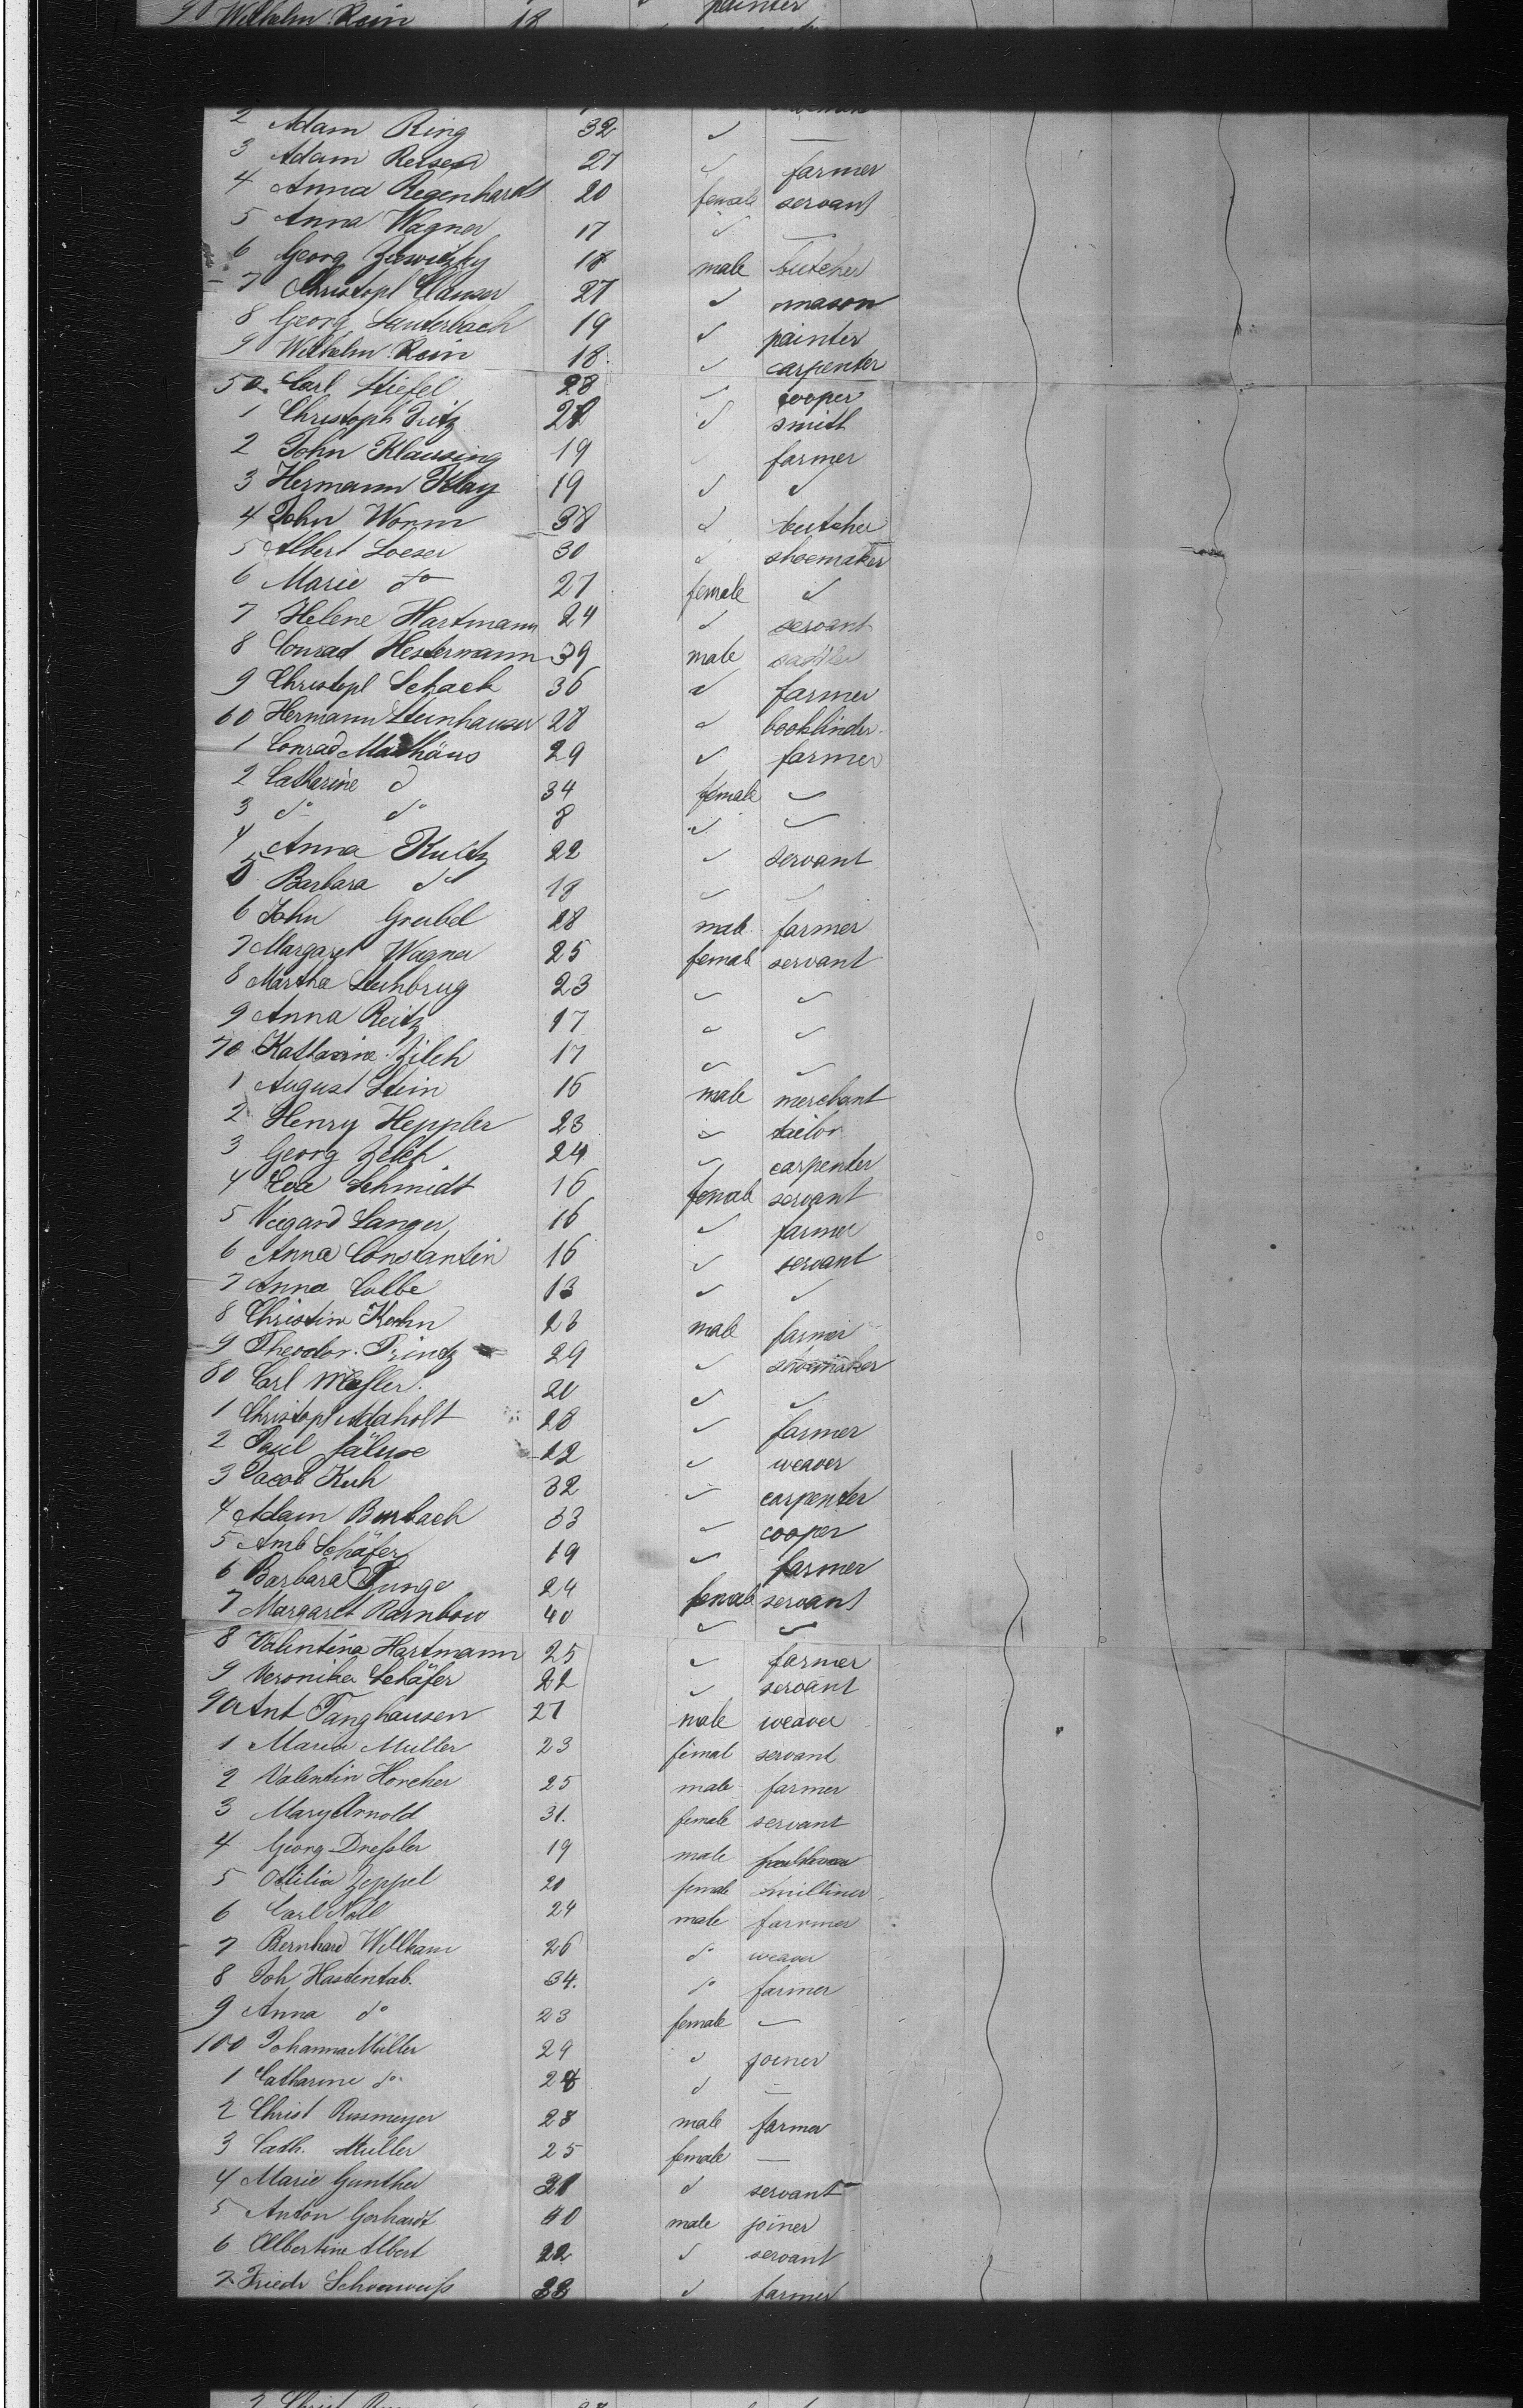 90 Wilhelm Rein 18 painter
2 Adam Ring 32 ✓ —
3 Adam 27 ✓ farmer
4 Anna Regenhardt 20 female servant
5 Anna Wagner 17 ✓ —
6 Georg 18 male butcher
7 Christopl Clauser 27 ✓ mason
8 Georg Lauterbach 19 ✓ painter
9 Wilhelm Rein 18 ✓ carpenter
50 Carl Stiefel 28 ✓ cooper
1 Christoph 28 ✓ smith
2 John Klausing 19 ✓ farmer
3 Hermann Klay 19 ✓ ✓
4 John Worm 38 ✓ butcher
5 Albert Loeser 30 ✓ shoemaker
6 Marie do 27 female ✓
7 Helene Hartmann 24 ✓ servant
8 Conrad Hestermann 39 male sadler
9 Christopl Schack 36 ✓ farmer
60 Hermann Steinhauser 28 ✓ bookbinder
1 Conrad Mathäus 29 ✓ farmer
2 Catharine do 34 female ✓
3 do do 8 ✓ ✓
4 Anna Kultz 22 ✓ servant
5 Barbara do 18 ✓ ✓
6 John Greubel 28 male farmer
7 Margaret Wagner 25 female servant
8 Martha Steinbrug 23 ✓ ✓
9 Anna Reitz 17 ✓ ✓
70 Katharina Zilch 17 ✓ ✓
1 August Stein 16 male merchant
2 Henry Heppler 23 ✓ tailor
3 Georg Zilch 24 ✓ carpenter
4 Eva Schmidt 16 female servant
5 Langer 16 ✓ farmer
6 Anna Constantin 16 ✓ servant
7 Anna Colbe 13 ✓ ✓
8 Christine Kohn 23 male farmer
9 Theodor Printz 29 ✓ shoemaker
80 Carl 20 ✓ ✓
1 Christopl Adaholt 28 ✓ farmer
2 Paul 12 ✓ weaver
3 Jacob Kuh 32 ✓ carpenter
4 Adam Burbach 33 ✓ cooper
5 Amb Schäfer 19 ✓ farmer
6 Barbara Junge 24 female servant
7 Margaret Rambow 40 ✓ ✓
8 Valentina Hartmann 25 ✓ farmer
9 Veronika Schäfer 22 ✓ servant
90 Ant Tanghausen 27 male weaver
1 Maria Muller 23 female servant
2 Valentin Horcher 25 male farmer
3 Mary Arnold 31. female servant
4 Georg Dreßler 19 male
5 Ottilia Zeppel 20 female milliner
6 Carl Noll 24 male farmer
7 Bernhard Willkam 26 do weaver
8 Joh Hastentab. 34. do farmer
9 Anna do 23 female —
100 Johanna Müller 29 ✓ joiner
1 Catharine do 28 ✓ —
2 Christ Rusmeyer 28 male farmer
3 Cath. Muller 25 female —
4 Marie Gunther 31 ✓ servant
5 Anton Gerhardt 40 male joiner
6 Albertine Albert 22 ✓ servant
7 Friedr Schonweiß 28 ✓ farmer